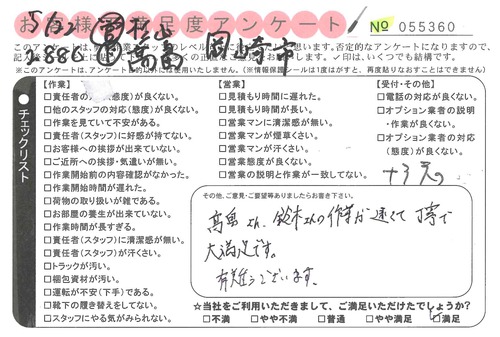 お客様満足度アンケート № 055360
5/32
2886
高畠 岡崎市
※このアンケートは、アンケート目的以外には使用いたしません。(※情報保護シールは1度はがすと、再度貼りなおすことはできません)
チェックリスト
【作業】
□他のスタッフの対応(態度)が良くない。
□作業を見ていて不安がある。
□責任者(スタッフ)に好感が持てない。
□お客様への挨拶が出来ていない。
□ご近所への挨拶・気遣いが無い。
□作業開始前の内容確認がなかった。
□作業開始時間が遅れた。
□荷物の取り扱いが雑である。
□お部屋の養生が出来ていない。
□作業時間が長すぎる。
□責任者(スタッフ)に清潔感が無い。
□責任者(スタッフ)が汗くさい。
□トラックが汚い。
□梱包資材が汚い。
□運転が不安(下手)である。
□靴下の履き替えをしてない。
□スタッフにやる気がみられない。
【営業】
□見積もり時間に遅れた。
□見積もり時間が長い。
□営業マンに清潔感が無い。
□営業マンが煙草くさい。
□営業マンが汗くさい。
□営業態度が良くない。
□営業の説明と作業が一致してない。
【受付・その他】
□電話の対応が良くない。
□オプション業者の説明
・作業が良くない。
□オプション業者の対応
(態度)が良くない。
その他、ご意見・ご要望等ありましたらお書き下さい。
高畠さん、鈴木さんの作業が速くて丁寧で
大満足です。
有難うございます。
☆当社をご利用いただきまして、ご満足いただけたでしょうか?
□不満 □やや不満 □普通 □やや満足 □満足